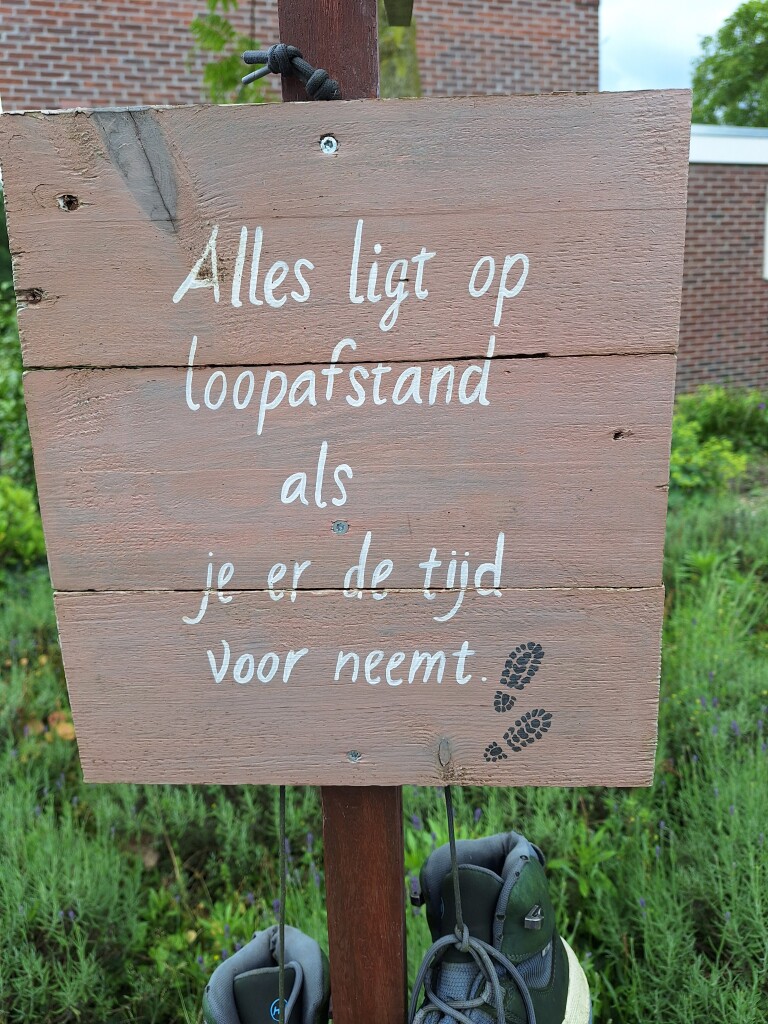 Alles ligt op
loopafstand
als
je er de tijd
voor neemt.